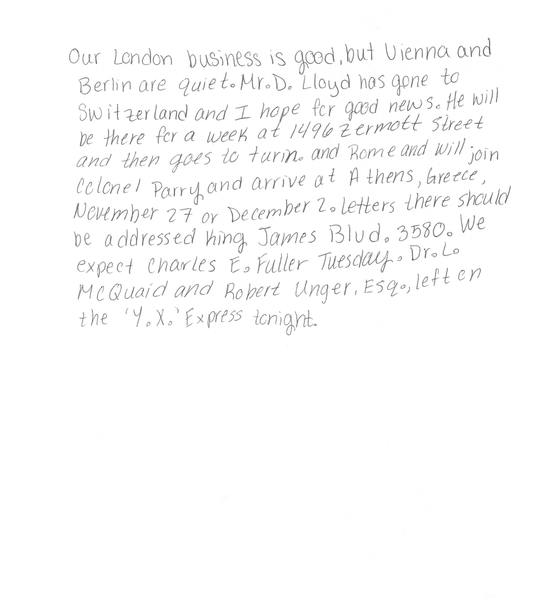 Our London business is good, but Vienna and
Berlin are quiet. Mr. D. Lloyd has gone to
Switzerland and I hope for good news. He will
be there for a week at 1496 Zermott Street
and then goes to turin. and Rome and will join
Colonel Parry and arrive at Athens, Greece,
November 27 or December 2. letters there should
be addressed King James Blvd. 3580. We
expect Charles E. Fuller Tuesday. Dr. L.
McQuaid and Robert Unger, Esq., left on
the 'Y.X.' Express tonight.